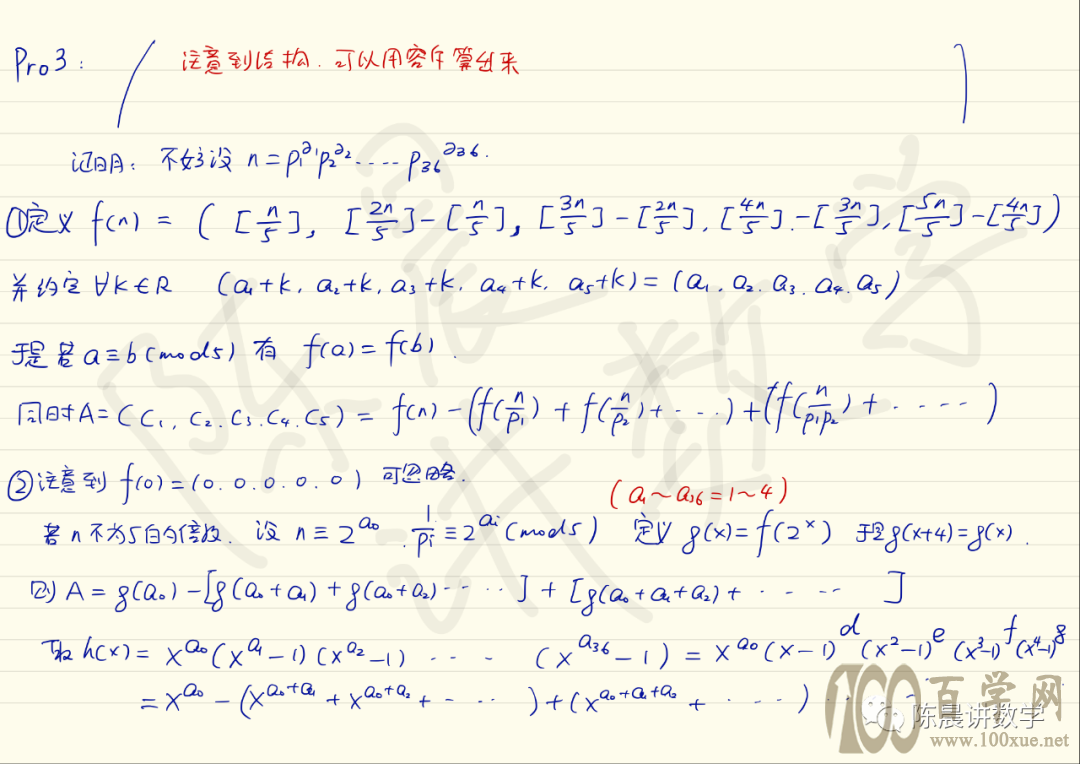 Pro3: ( 注意到结构.可以用容斥算出来 )
证明: 不妨设 n = p₁^{∂₁} p₂^{∂₂} ····· p₃₆^{∂₃₆}.
①定义 f(n) = ( [n/5], [2n/5]-[n/5], [3n/5]-[2n/5], [4n/5]-[3n/5], [5n/5]-[4n/5] )
并约定 ∀k∈R (a₁+k, a₂+k, a₃+k, a₄+k, a₅+k) = (a₁, a₂, a₃, a₄, a₅)
于是 若 a≡b(mod5) 有 f(a)=f(b).
同时 A = (C₁, C₂, C₃, C₄, C₅) = f(n) - (f(n/p₁) + f(n/p₂) + ···) + (f(n/p₁p₂) + ·····)
②注意到 f(0) = (0.0.0.0.0) 可忽略.
(a₁~a₃₆=1~4)
若 n 不为5的倍数. 设 n≡2^{a₀}. 1/pᵢ≡2^{aᵢ}(mod5) 定义 g(x)=f(2^x) 于是 g(x+4)=g(x).
则 A = g(a₀) - [g(a₀+a₁) + g(a₀+a₂) ·····] + [g(a₀+a₁+a₂) + ·····]
取 h(x) = x^{a₀}(x^{a₁}-1)(x^{a₂}-1) ····· (x^{a₃₆}-1) = x^{a₀}(x-1)^d(x²-1)^e(x³-1)^f(x⁴-1)^g
= x^{a₀} - (x^{a₀+a₁} + x^{a₀+a₂} + ·····) + (x^{a₀+a₁+a₂} + ····) ····
陈晨讲数学
100百学网
www.100xue.net